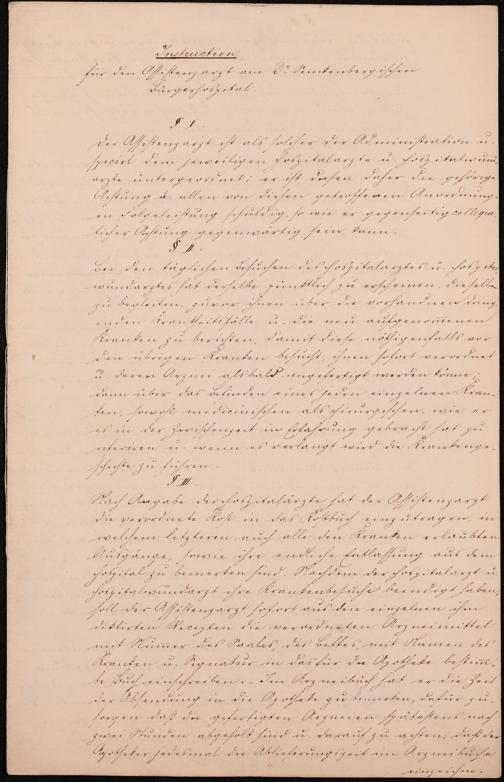 Instruction
für den Assistenzarzt am Dr. Senckenbergischen
Bürgerhospital.
§ I.
Der Assistenzarzt ist als solcher der Administration u.
speciel dem jeweiligen Hospitalarzte u. Hospitalwund-
arzte untergeordnet; er ist diesen daher die gehörige
Achtung & allen von diesen getroffenen Anordnung-
en Folgeleistung schuldig, so wie er gegenseitig collegia-
lischer Achtung gegenwärtig sein kann.
§ II.
Bei den täglichen Besuchen des Hospitalarztes u. Hospital-
wundarztes hat derselbe pünktlich zu erscheinen, dieselben
zu begleiten, zuvor ihnen über die vorhandenen dring-
enden Krankheitsfälle u. die neu aufgenommenen
Kranken zu berichten, damit diese nöthigenfalls vor
den übrigen Kranken besucht, ihnen sofort verordnet
u. deren Arznei alsbald angefertigt werden könne;
dann über das Befinden eines jeden einzelnen Kran-
ken, sowohl medicinischen als chirurgischen, wie er
es in der Zwischenzeit in Erfahrung gebracht hat zu
referiren u. wenn es verlangt wird die Krankenge-
schichte zu führen.
§ III.
Nach Angabe der Hospitalärzte hat der Assistenzarzt
die verordnete Kost in das Kostbuch einzutragen, in
welchem letzteren auch alle den Kranken erlaubten
Ausgänge, sowie ihre endliche Entlassung aus dem
Hospital zu bemerken sind. Nachdem der Hospitalarzt u.
Hospitalwundarzt ihre Krankenbesuche beendigt haben,
soll der Assistenzarzt sofort aus den einzelnen ihm
diktirten Recepten die verordneten Arzneimittel
mit Numer des Saales, des Bettes, mit Namen des
Kranken u. Signatur in das für die Apotheke bestimm-
te Buch einschreiben. - Im Arzneibuch hat er die Zeit
der Absendung in die Apotheke zu bemerken, dafür zu
sorgen daß die gefertigten Arzneien spätestens nach
zwei Stunden abgeholt sind u. darauf zu achten, daß der
Apotheker jedesmal die Ablieferungszeit im Arzneibuche
einzeichne.